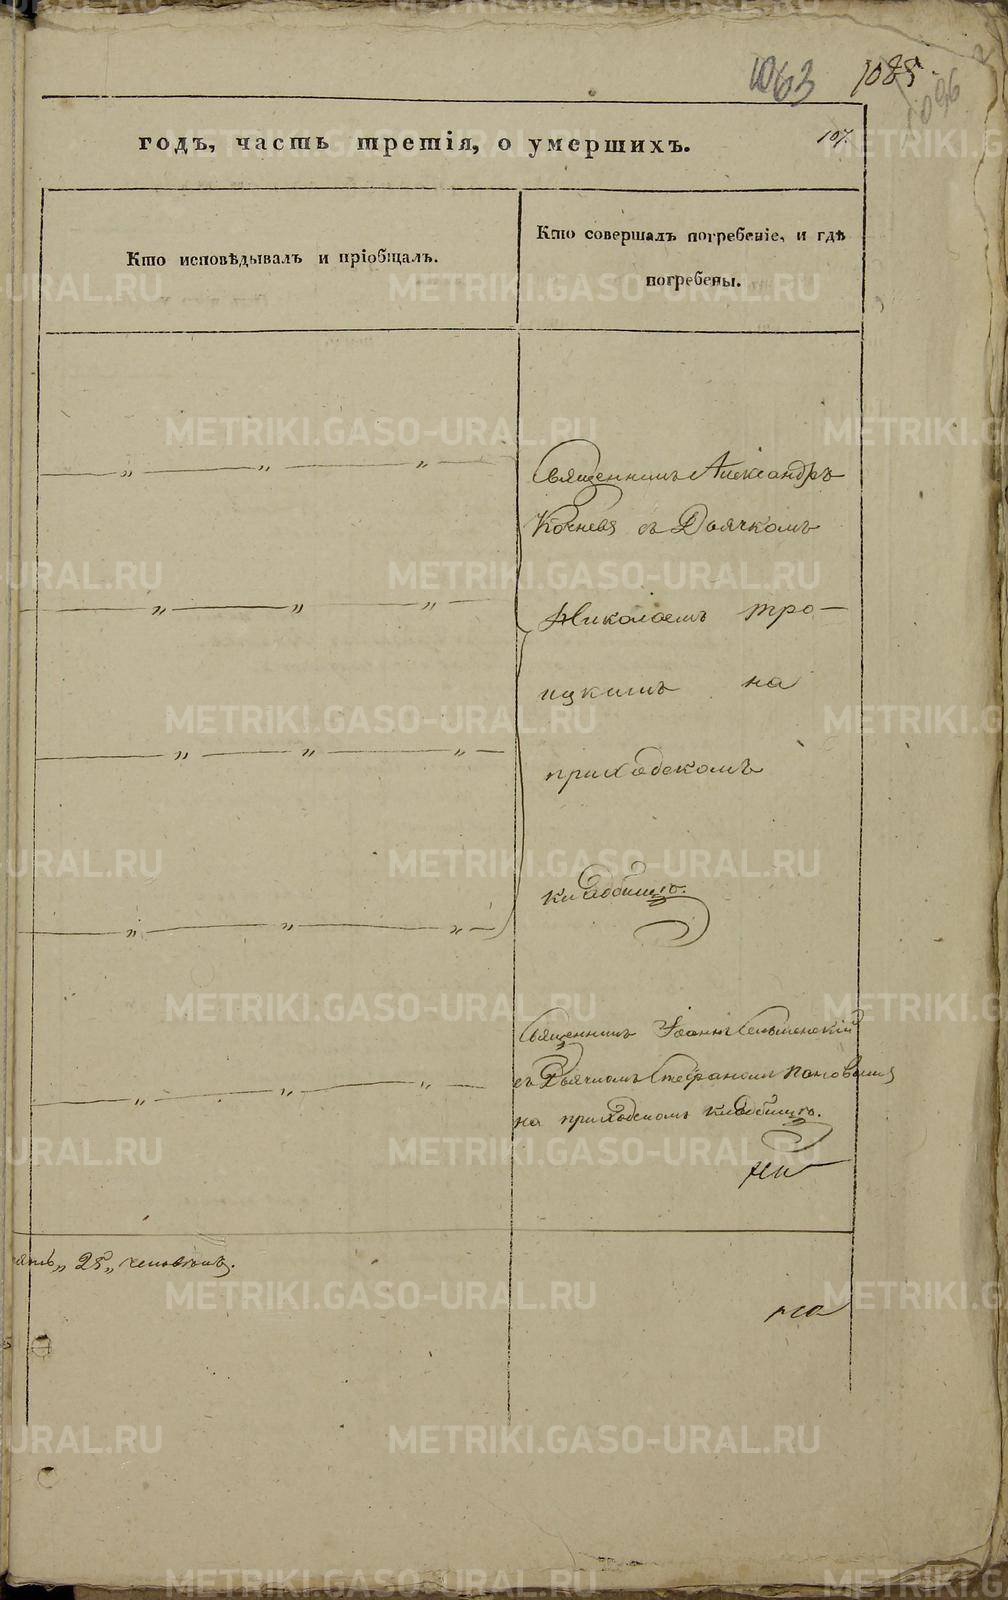 1063 1085.
1096
годъ, часть третія, о умершихъ.
107.
Кто исповѣдывалъ и пріобщалъ.
Кто совершалъ погребеніе, и гдѣ
погребены.
Священникъ Александръ
Кочневъ съ Дьячкомъ
Николаемъ Тро-
ицкимъ на
приходскомъ
кладбищѣ.
Священникъ Іоаннъ
съ Дьячкомъ Стефаномъ Поповымъ
на приходскомъ кладбищѣ.
25, человѣкъ.
METRIKI.GASO-URAL.RU